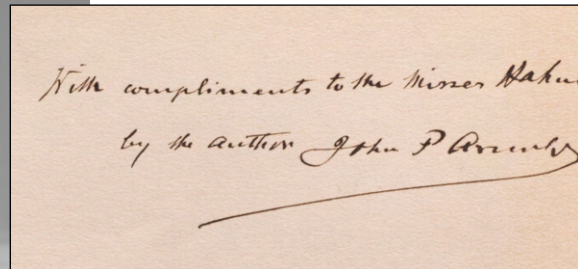 With compliments to the Misses
by the author John P